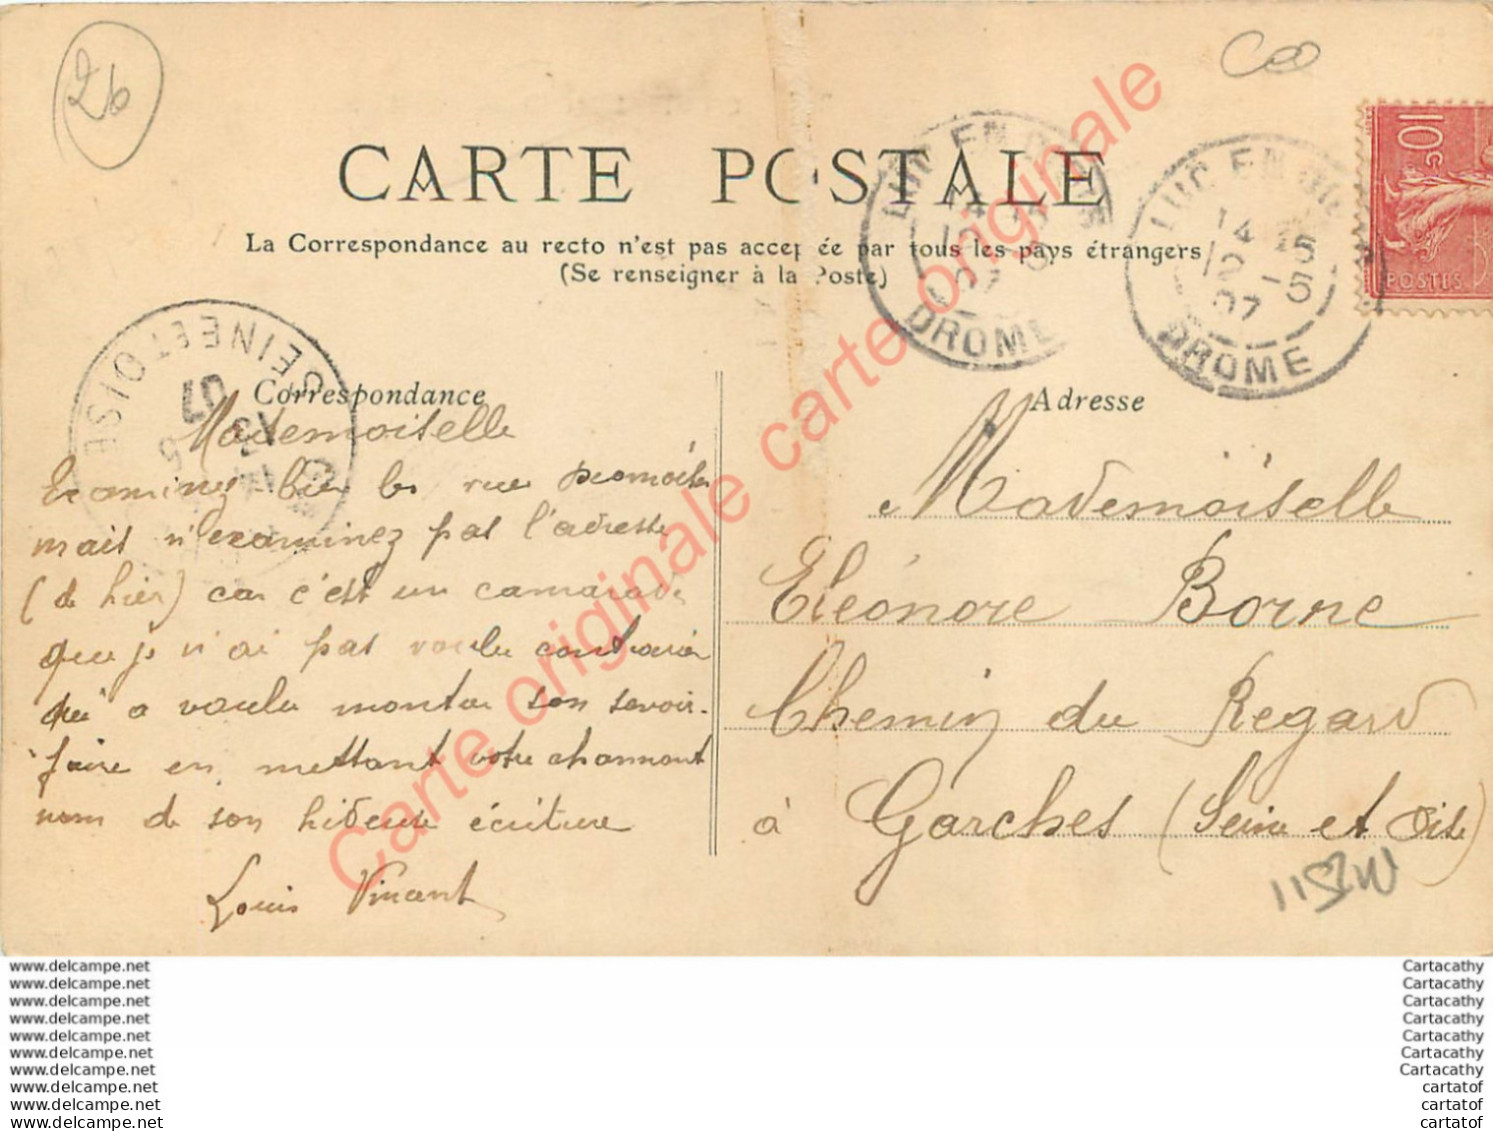 26
CARTE POSTALE
La Correspondance au recto n'est pas acceptée par tous les pays étrangers
(Se renseigner à la Poste)
LUC EN
14
10 5
07
DROME
LUC EN
14 25
12 -5
07
DROME
10
c
POSTES
SEINE ET OISE
13
5
07
Correspondance
Mademoiselle
Examinez bien les vues
mais n'examinez pas l'adresse
(de hier) car c'est un camarade
que je n'ai pas voulu contrarier
qui a voulu montrer son savoir-
faire en mettant votre charmant
nom de son hideuse écriture
Louis Vincent
Adresse
Mademoiselle
Eléonore Borne
Chemin du Regard
à Garches (Seine et Oise)
Carte originale carte originale
www.delcampe.net
www.delcampe.net
www.delcampe.net
www.delcampe.net
www.delcampe.net
www.delcampe.net
www.delcampe.net
www.delcampe.net
www.delcampe.net
www.delcampe.net
Cartacathy
Cartacathy
Cartacathy
Cartacathy
Cartacathy
Cartacathy
Cartacathy
cartatof
cartatof
cartatof